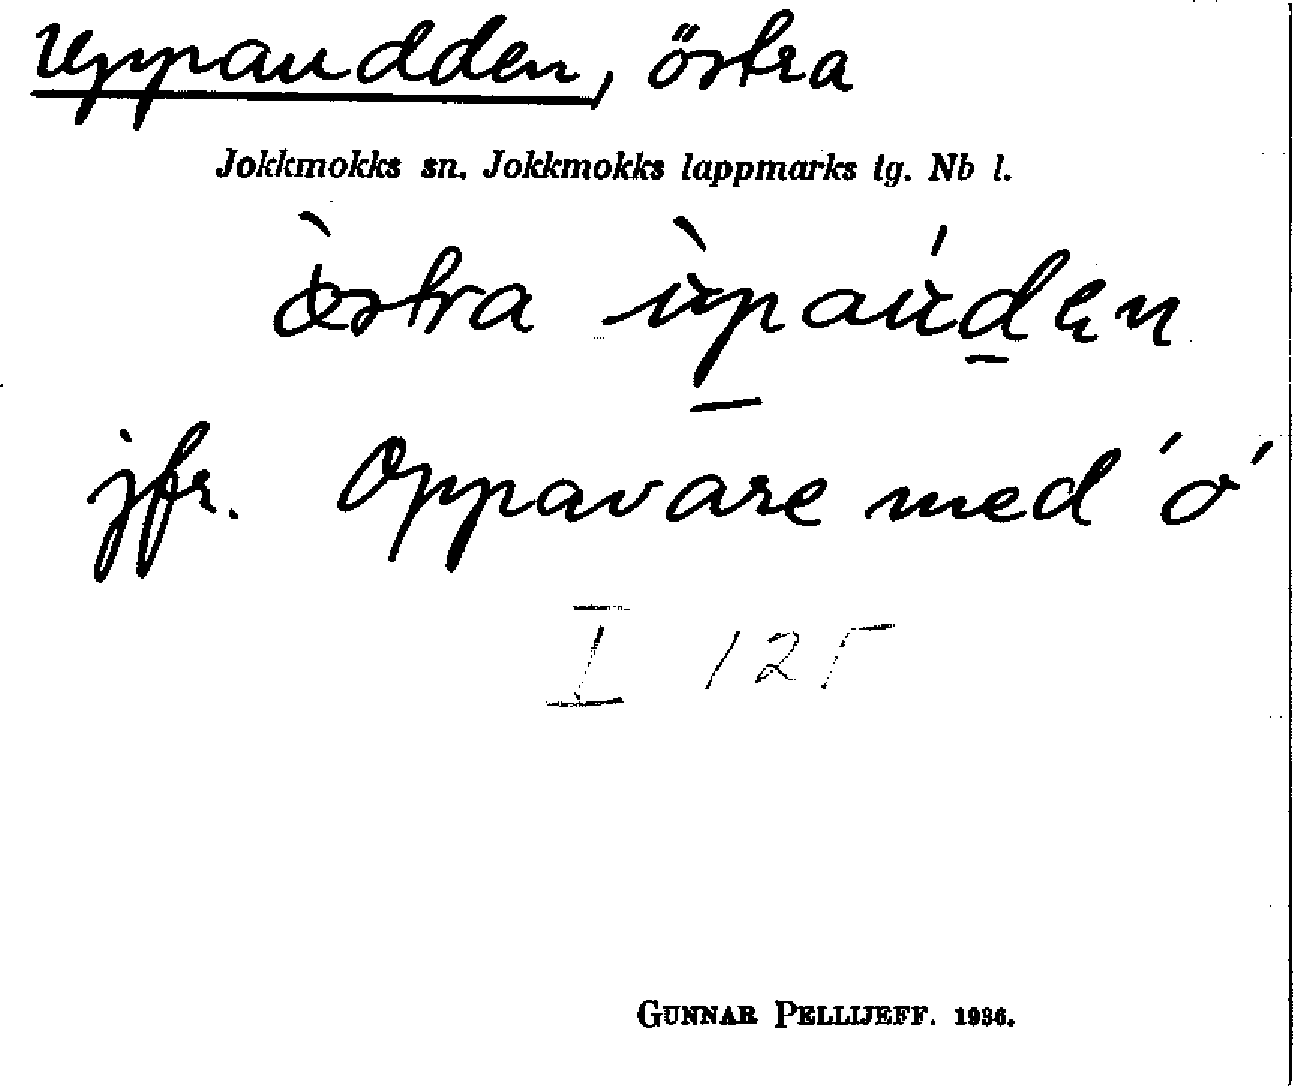 Uppaudden, östra
Jokkmokks sn. Jokkmokks lappmarks tg. Nb l.
jfr. Oppavare med ó
I 125
GUNNAR PELLIJEFF. 1936.